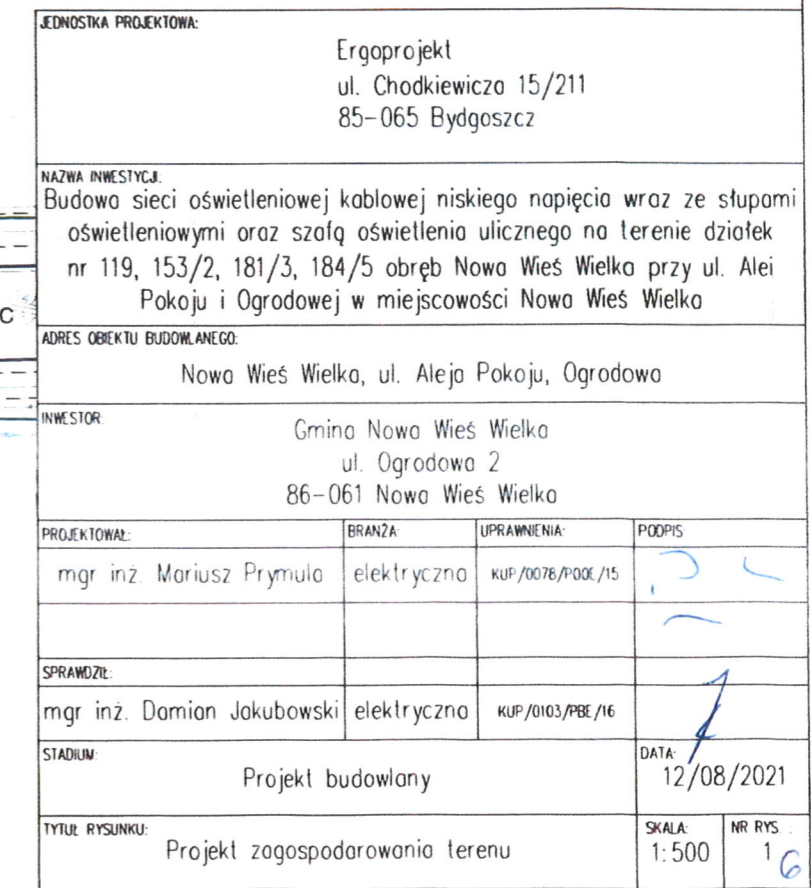 JEDNOSTKA PROJEKTOWA:
Ergoprojekt
ul. Chodkiewicza 15/211
85-065 Bydgoszcz
NAZWA INWESTYCJI:
Budowa sieci oświetleniowej kablowej niskiego napięcia wraz ze słupami
oświetleniowymi oraz szafą oświetlenia ulicznego na terenie działek
nr 119, 153/2, 181/3, 184/5 obręb Nowa Wieś Wielka przy ul. Alei
Pokoju i Ogrodowej w miejscowości Nowa Wieś Wielka
C
ADRES OBIEKTU BUDOWLANEGO:
Nowa Wieś Wielka, ul. Aleja Pokoju, Ogrodowa
INWESTOR:
Gmina Nowa Wieś Wielka
ul. Ogrodowa 2
86-061 Nowa Wieś Wielka
PROJEKTOWAŁ: BRANŻA: UPRAWNIENIA: PODPIS:
mgr inż. Mariusz Prymula elektryczna KUP/0078/POOE/15
SPRAWDZIŁ:
mgr inż. Damian Jakubowski elektryczna KUP/0103/PBE/16
STADIUM: DATA:
Projekt budowlany 12/08/2021
TYTUŁ RYSUNKU: SKALA: NR RYS.:
Projekt zagospodarowania terenu 1:500 1 6